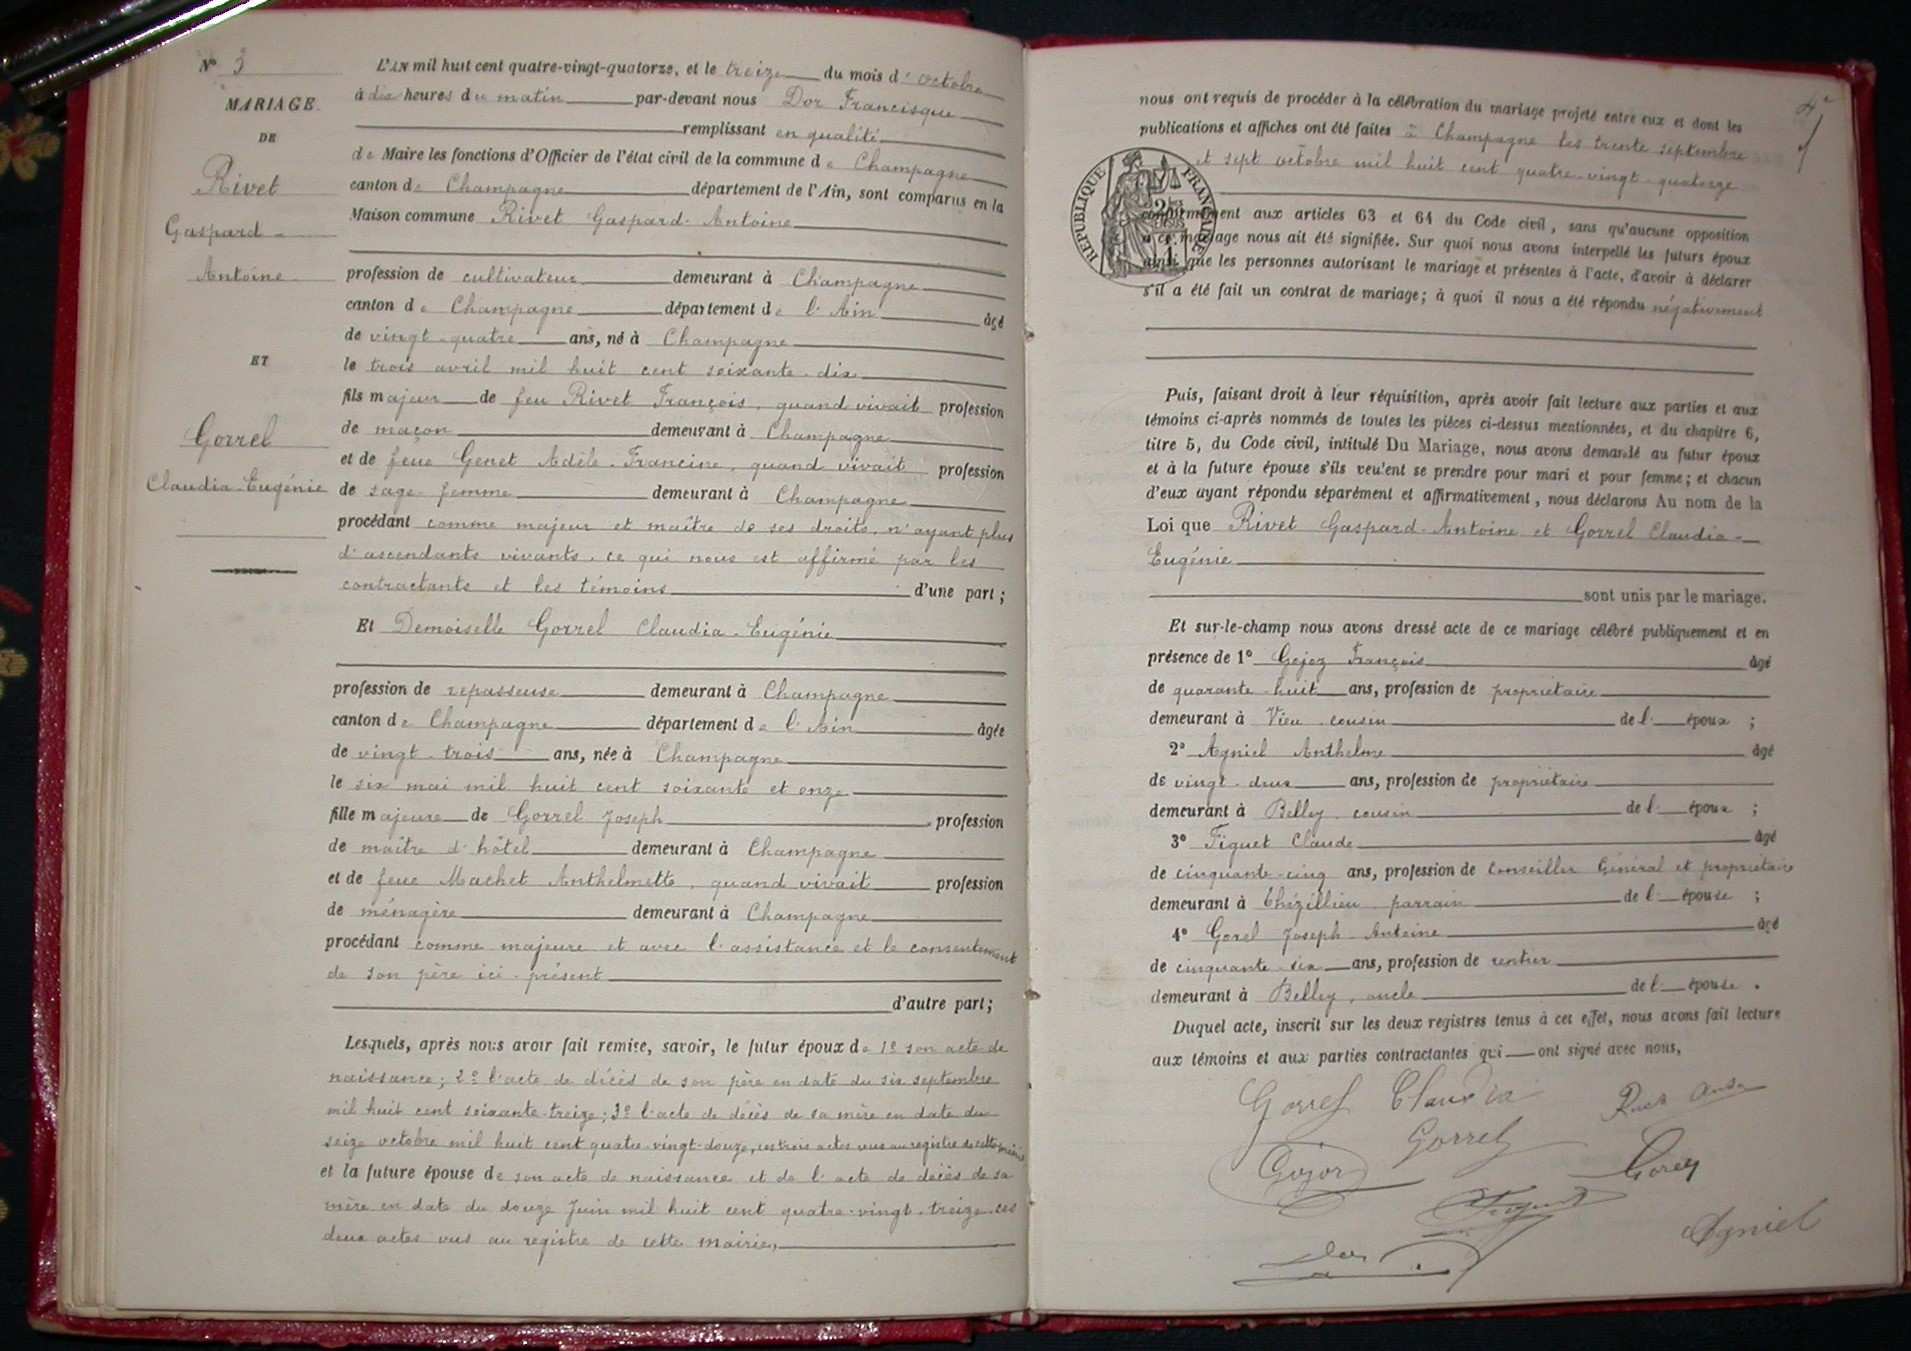 N° 3
MARIAGE
DE
Rivet
Gaspard
Antoine
ET
Gorrel
Claudia-Eugénie
L'AN mil huit cent quatre-vingt-quatorze, et le treize du mois d'octobre
à dix heures du matin par-devant nous Dor Francisque
remplissant en qualité
de Maire les fonctions d'Officier de l'état civil de la commune de Champagne
canton de Champagne département de l'Ain, sont comparus en la
Maison commune Rivet Gaspard-Antoine
profession de cultivateur demeurant à Champagne
canton de Champagne département de l'Ain âgé
de vingt-quatre ans, né à Champagne
le trois avril mil huit cent soixante-dix
fils majeur de feu Rivet François, quand vivait profession
de maçon demeurant à Champagne
et de feue Genet Adèle-Francine, quand vivait profession
de sage femme demeurant à Champagne
procédant comme majeur et maître de ses droits, n'ayant plus
d'ascendants vivants, ce qui nous est affirmé par les
contractants et les témoins d'une part;
Et Demoiselle Gorrel Claudia-Eugénie
profession de repasseuse demeurant à Champagne
canton de Champagne département de l'Ain âgée
de vingt-trois ans, née à Champagne
le six mai mil huit cent soixante et onze
fille majeure de Gorrel Joseph profession
de maître d'hôtel demeurant à Champagne
et de feue Machet Anthelmette, quand vivait profession
de ménagère demeurant à Champagne
procédant comme majeure et avec l'assistance et le consentement
de son père ici présent
d'autre part;
Lesquels, après nous avoir fait remise, savoir, le futur époux de 1° son acte de
naissance; 2° l'acte de décès de son père en date du six septembre
mil huit cent soixante-treize; 3° l'acte de décès de sa mère en date du
seize octobre mil huit cent quatre-vingt-douze, ces trois actes vus au registre de cette mairie
et la future épouse de son acte de naissance et de l'acte de décès de sa
mère en date du douze Juin mil huit cent quatre-vingt-treize ces
deux actes vus au registre de cette mairie,
nous ont requis de procéder à la célébration du mariage projeté entre eux et dont les
publications et affiches ont été faites à Champagne les trente septembre
et sept octobre mil huit cent quatre-vingt-quatorze
RÉPUBLIQUE FRANÇAISE
conformément aux articles 63 et 64 du Code civil, sans qu'aucune opposition
à ce mariage nous ait été signifiée. Sur quoi nous avons interpellé les futurs époux
ainsi que les personnes autorisant le mariage et présentes à l'acte, d'avoir à déclarer
s'il a été fait un contrat de mariage; à quoi il nous a été répondu négativement
Puis, faisant droit à leur réquisition, après avoir fait lecture aux parties et aux
témoins ci-après nommés de toutes les pièces ci-dessus mentionnées, et du chapitre 6,
titre 5, du Code civil, intitulé Du Mariage, nous avons demandé au futur époux
et à la future épouse s'ils veulent se prendre pour mari et pour femme; et chacun
d'eux ayant répondu séparément et affirmativement, nous déclarons Au nom de la
Loi que Rivet Gaspard-Antoine et Gorrel Claudia-
Eugénie
sont unis par le mariage.
Et sur-le-champ nous avons dressé acte de ce mariage célébré publiquement et en
présence de 1° Gojoz François âgé
de quarante-huit ans, profession de propriétaire
demeurant à Vieu cousin de l'époux ;
2° Agniel Anthelme âgé
de vingt-deux ans, profession de propriétaire
demeurant à Belley, cousin de l'époux ;
3° Fiquet Claude âgé
de cinquante-cinq ans, profession de Conseiller Général et propriétaire
demeurant à Thézillieu parrain de l'épouse ;
4° Gorel Joseph-Antoine âgé
de cinquante-six ans, profession de rentier
demeurant à Belley, oncle de l'épouse .
Duquel acte, inscrit sur les deux registres tenus à cet effet, nous avons fait lecture
aux témoins et aux parties contractantes qui ont signé avec nous,
Gorrel Claudia
Gorrel
Gojoz
Gorel
Agniel
Dor